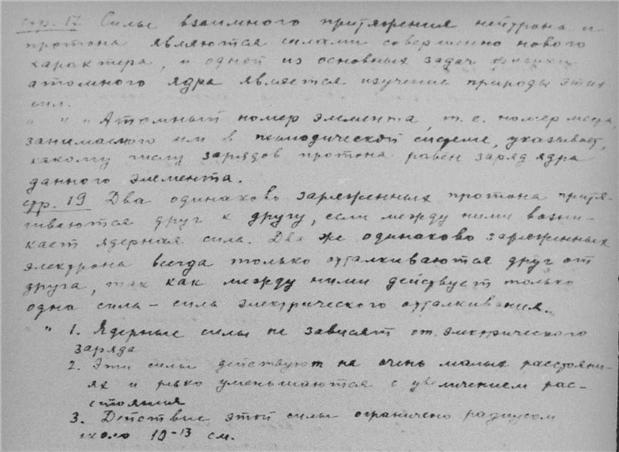 стр. 17 Силы взаимного притяжения нейтрона и
протона являются силами совершенно нового
характера, и одной из основных задач физики
атомного ядра является изучение природы этих
сил.
" " " Атомный номер элемента т.е. номер места,
занимаемого им в периодической системе, указывает,
какому числу зарядов протона равен заряд ядра
данного элемента.
стр. 19 Два одинаково заряженных протона притя-
гиваются друг к другу, если между ними возни-
кает ядерная сила. Два же одинаково заряженных
электрона всегда только отталкиваются друг от
друга, так как между ними действует только
одна сила – сила электрического отталкивания.
" 1. Ядерные силы не зависят от электрического
заряда
2. Эти силы действуют на очень малых расстояни-
ях и резко уменьшаются с увеличением рас-
стояния
3. Действие этой силы ограничено радиусом
около 10-13 см.